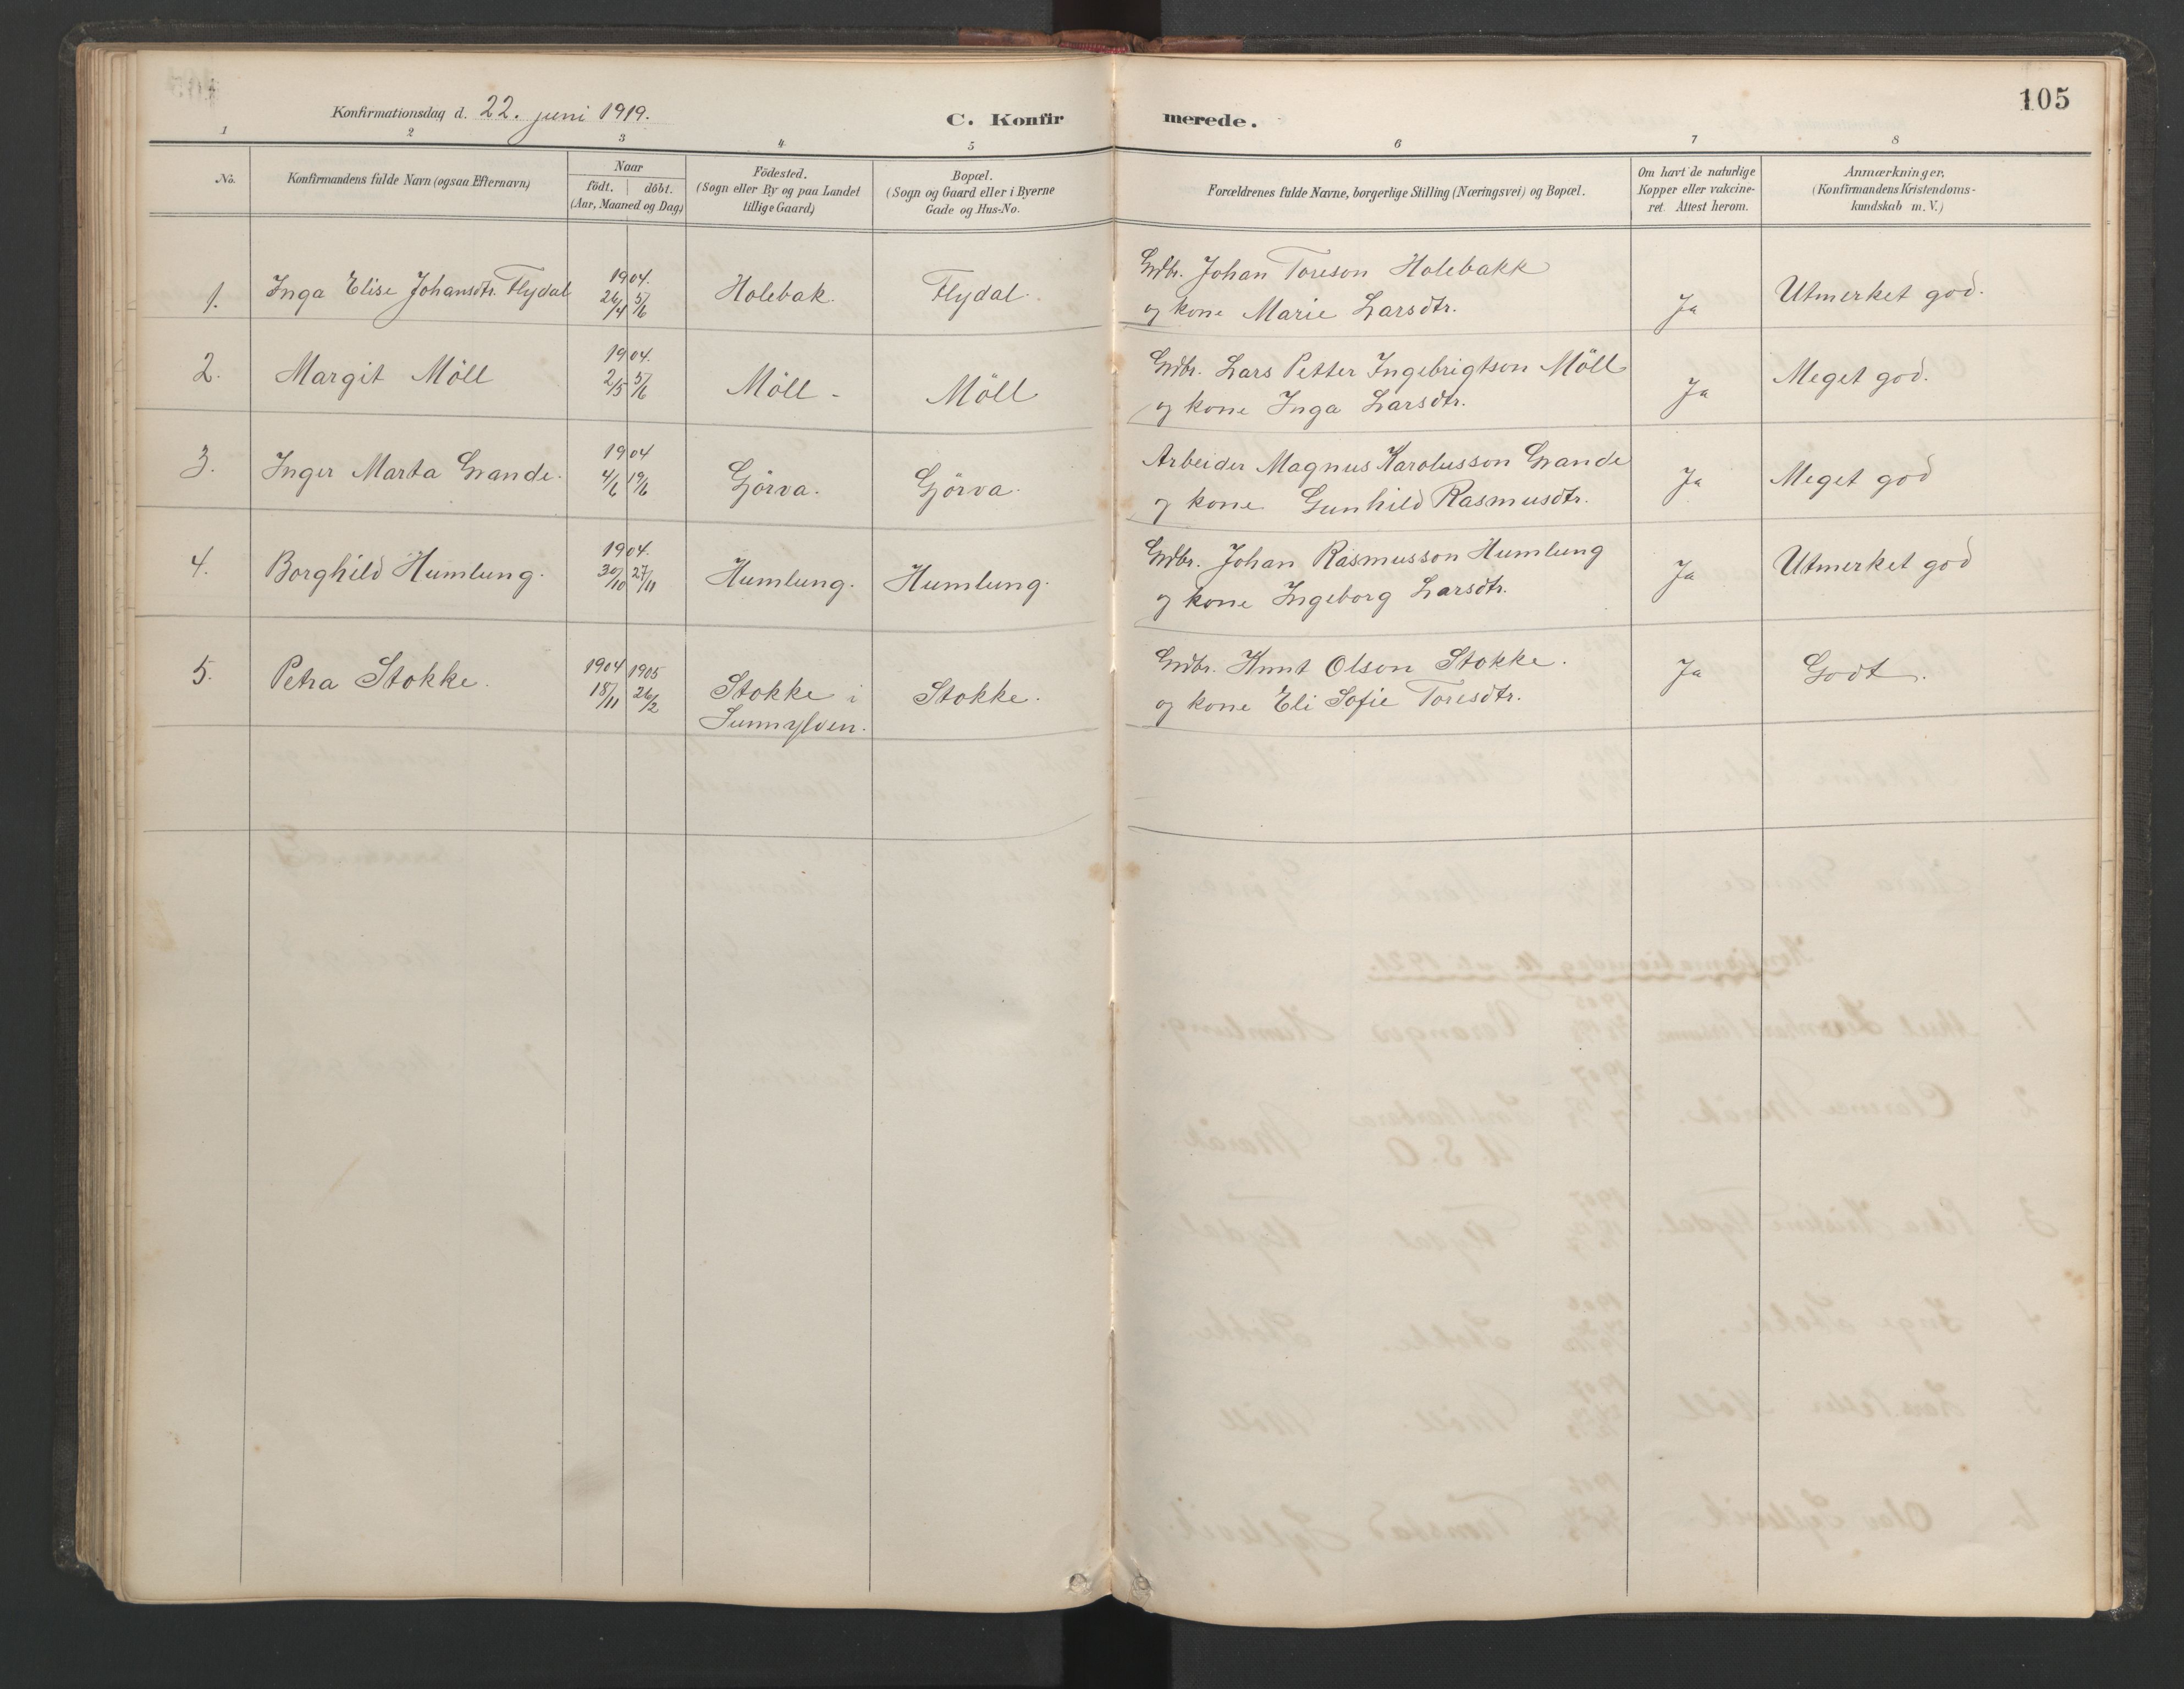 105
Konfirmationsdag d. 22. juni 1919.
C. Konfirmerede.
1 2 3 4 5 6 7 8
No.
Konfirmandens fulde Navn (ogsaa Efternavn)
Naar
födt. | döbt.
(Aar, Maaned og Dag)
Födested.
(Sogn eller By og paa Landet
tillige Gaard)
Bopæl.
(Sogn og Gaard eller i Byerne
Gade og Hus-No.
Forældrenes fulde Navne, borgerlige Stilling (Næringsvei) og Bopæl.
Om havt de naturlige
Kopper eller vakcine-
ret. Attest herom.
Anmærkninger,
(Konfirmandens Kristendoms-
kundskab m. V.)
1. Inga Elise Johansdtr. Flydal 1904. 26/4 5/6 Holebak. Flydal. Grdbr. Johan Toreson Holebakk
og kone Marie Larsdtr. Ja Utmerket god.
2. Margit Möll 1904. 2/5 5/6 Möll - Möll Grdbr. Lars Petter Ingebrigtson Möll
og kone Inga Larsdtr. Ja Meget god.
3. Inger Marta Grande. 1904 4/6 19/6 Gjörva. Gjörva. Arbeider Magnus Karolusson Grande
og kone Gunhild Rasmusdtr. Ja Meget god
4. Borghild Humlung. 1904. 30/10 27/11 Humlung. Humlung. Grdbr. Johan Rasmusson Humlung
og kone Ingeborg Larsdtr. Ja Utmerket god
5. Petra Stokke. 1904 18/11 1905 26/2 Stokke i
Sunnylven. Stokke. Grdbr. Knut Olson Stokke.
og kone Eli Sofie Toresdtr. Ja Godt.